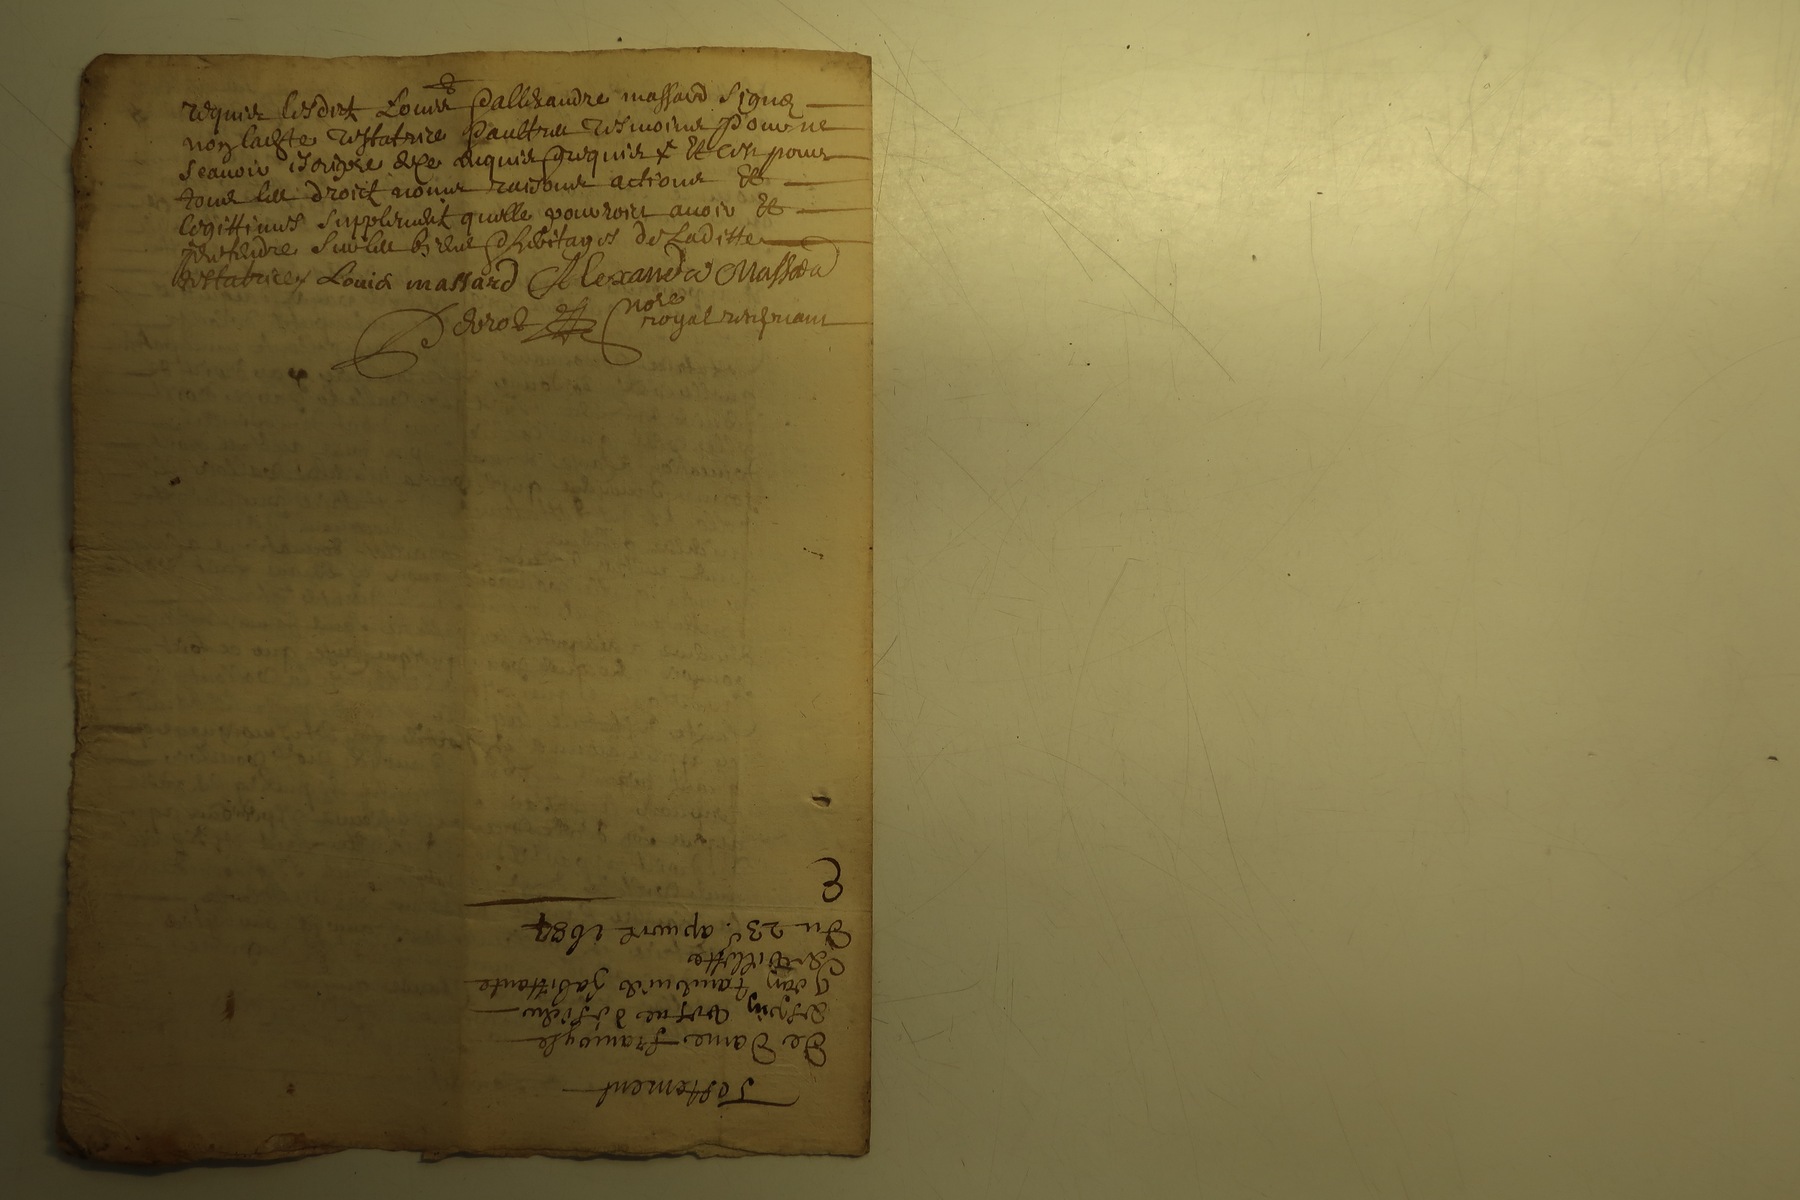 requis lesdits Louis & allexandre massard signés
non ladite testatrice & aultres tesmoins pour ne
scavoir escripre de ce enquis & requis & et ce pour
tous les droits noms raisons actions &
legittimes supplement quelle pouvoit avoir &
pretendre sur les biens & heritages de Laditte
testatrice Louis massard Alexandre Massard
nore
royal recepvant
Testement
De Dame françoyse
vefve de sieur
Jean habittante
Du 23e. apvril 1687